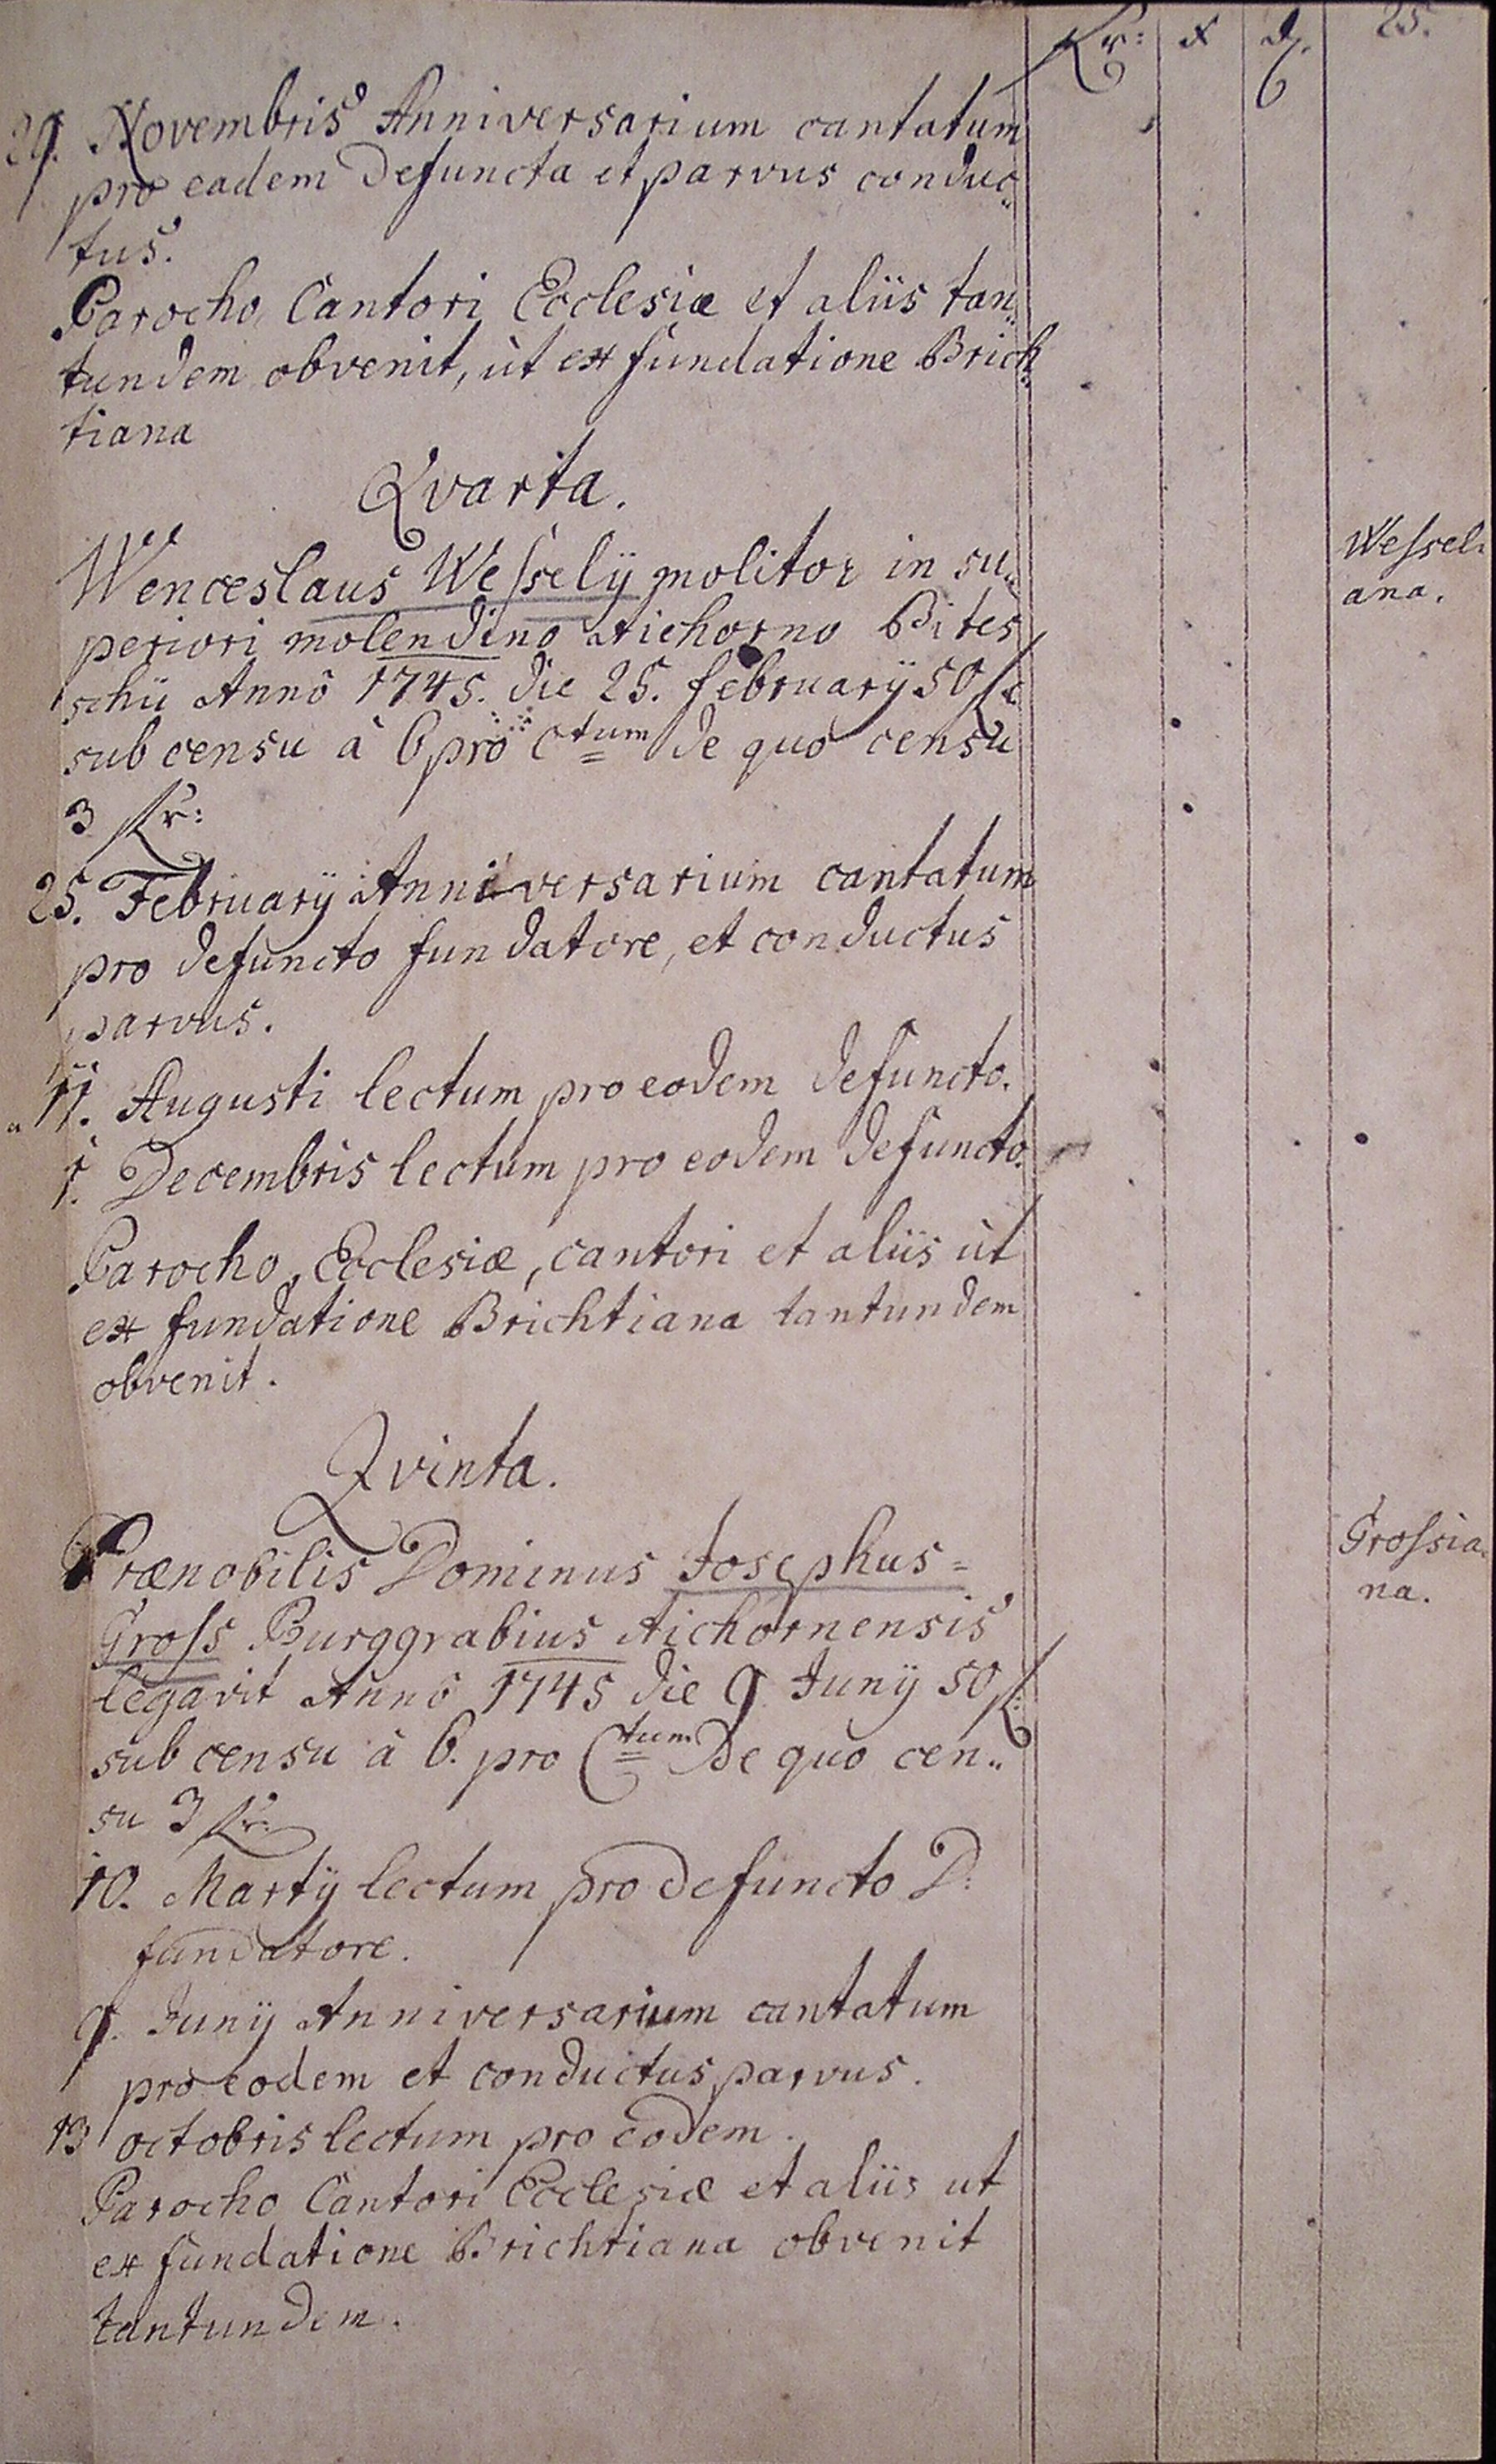 fr: x d. 25.
29. Novembris Anniversarium cantatum
pro eadem Defuncta et parvus conduc„
tus.
Parocho, Cantori Ecclesiæ et aliis tan„
tundem obvenit, ùt ex fundatione Brich„
tiana
Qvarta.
Wenceslaus Wesselÿ molitor in su„
Wessel„
ana.
periori molendino Aichorno Bites
schii Annô 1745. die 25. februarÿ 50 f:
sub censu à 6 pro Ctum de quo censu
3 fr:
25. Februarÿ Anniversarium cantatum
pro defuncto fundatore, et conductus
parvus.
11. Augusti lectum pro eodem defuncto.
1. Decembris lectum pro eodem defuncto.
Parocho, Ecclesiæ, cantori et aliis ùt
ex fundatione Brichtiana tantundem
obvenit.
Qvinta.
Prænobilis Dominus Josephus=
Grossia„
na.
Gross Burggrabius Aichornensis
legavit Annô 1745 die 9 Junÿ 50 f:
sub censu à 6. pro Ctum De quo cen„
su 3 fr:
10. Martÿ lectum pro defuncto D:
fundatore.
9. Junÿ Anniversarium cantatum
pro eodem et conductus parvus.
13 octobris lectum pro eodem.
Parocho Cantori Ecclesiæ et aliis ut
ex fundatione Brichtiana obvenit
tantundem.